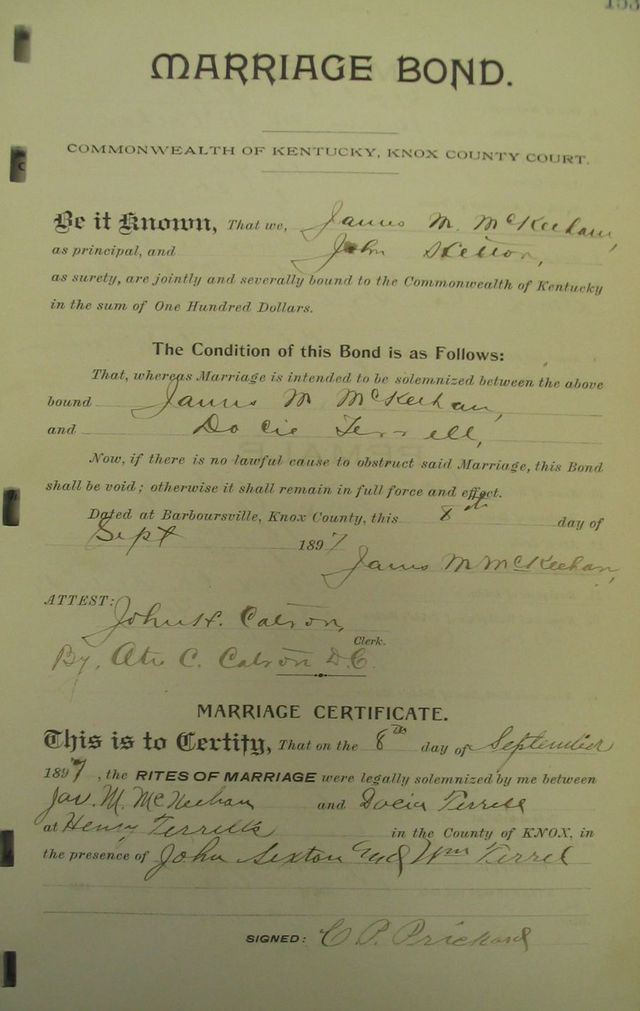 153
MARRIAGE BOND.
COMMONWEALTH OF KENTUCKY, KNOX COUNTY COURT.
Be it Known, That we, James M. McKeehan,
as principal, and John
as surety, are jointly and severally bound to the Commonwealth of Kentucky
in the sum of One Hundred Dollars.
The Condition of this Bond is as Follows:
That, whereas Marriage is intended to be solemnized between the above
bound James M McKeehan,
and Docie Terrell,
Now, if there is no lawful cause to obstruct said Marriage, this Bond
shall be void; otherwise it shall remain in full force and effect.
Dated at Barboursville, Knox County, this 8th day of
Sept 1897
James M McKeehan,
ATTEST:
John H. Catron,
Clerk.
By, C. Catron D.C.
MARRIAGE CERTIFICATE.
This is to Certify, That on the 8th day of September
1897, the RITES OF MARRIAGE were legally solemnized by me between
Jas. M. McKeehan and Docia Terrell
at Henry Terrells in the County of KNOX, in
the presence of John Sexton and Wm Terrel
SIGNED: C. P. Prichard